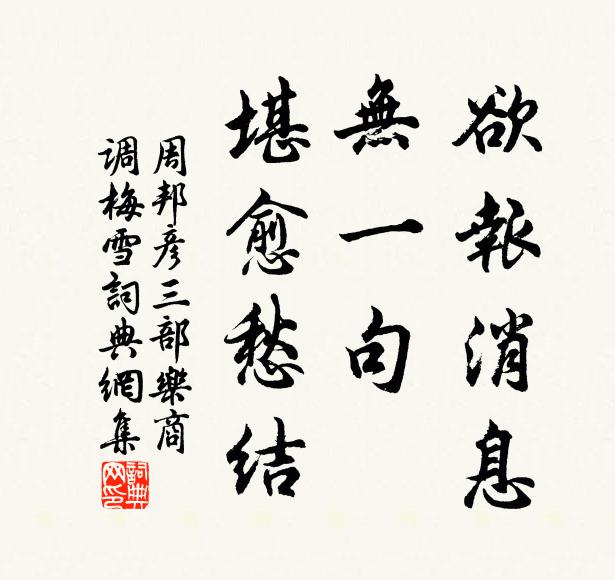 欲報消息
無一句
堪愈愁结
周邦彦三部樂商
调梅雪詞典網集
詞典
网印